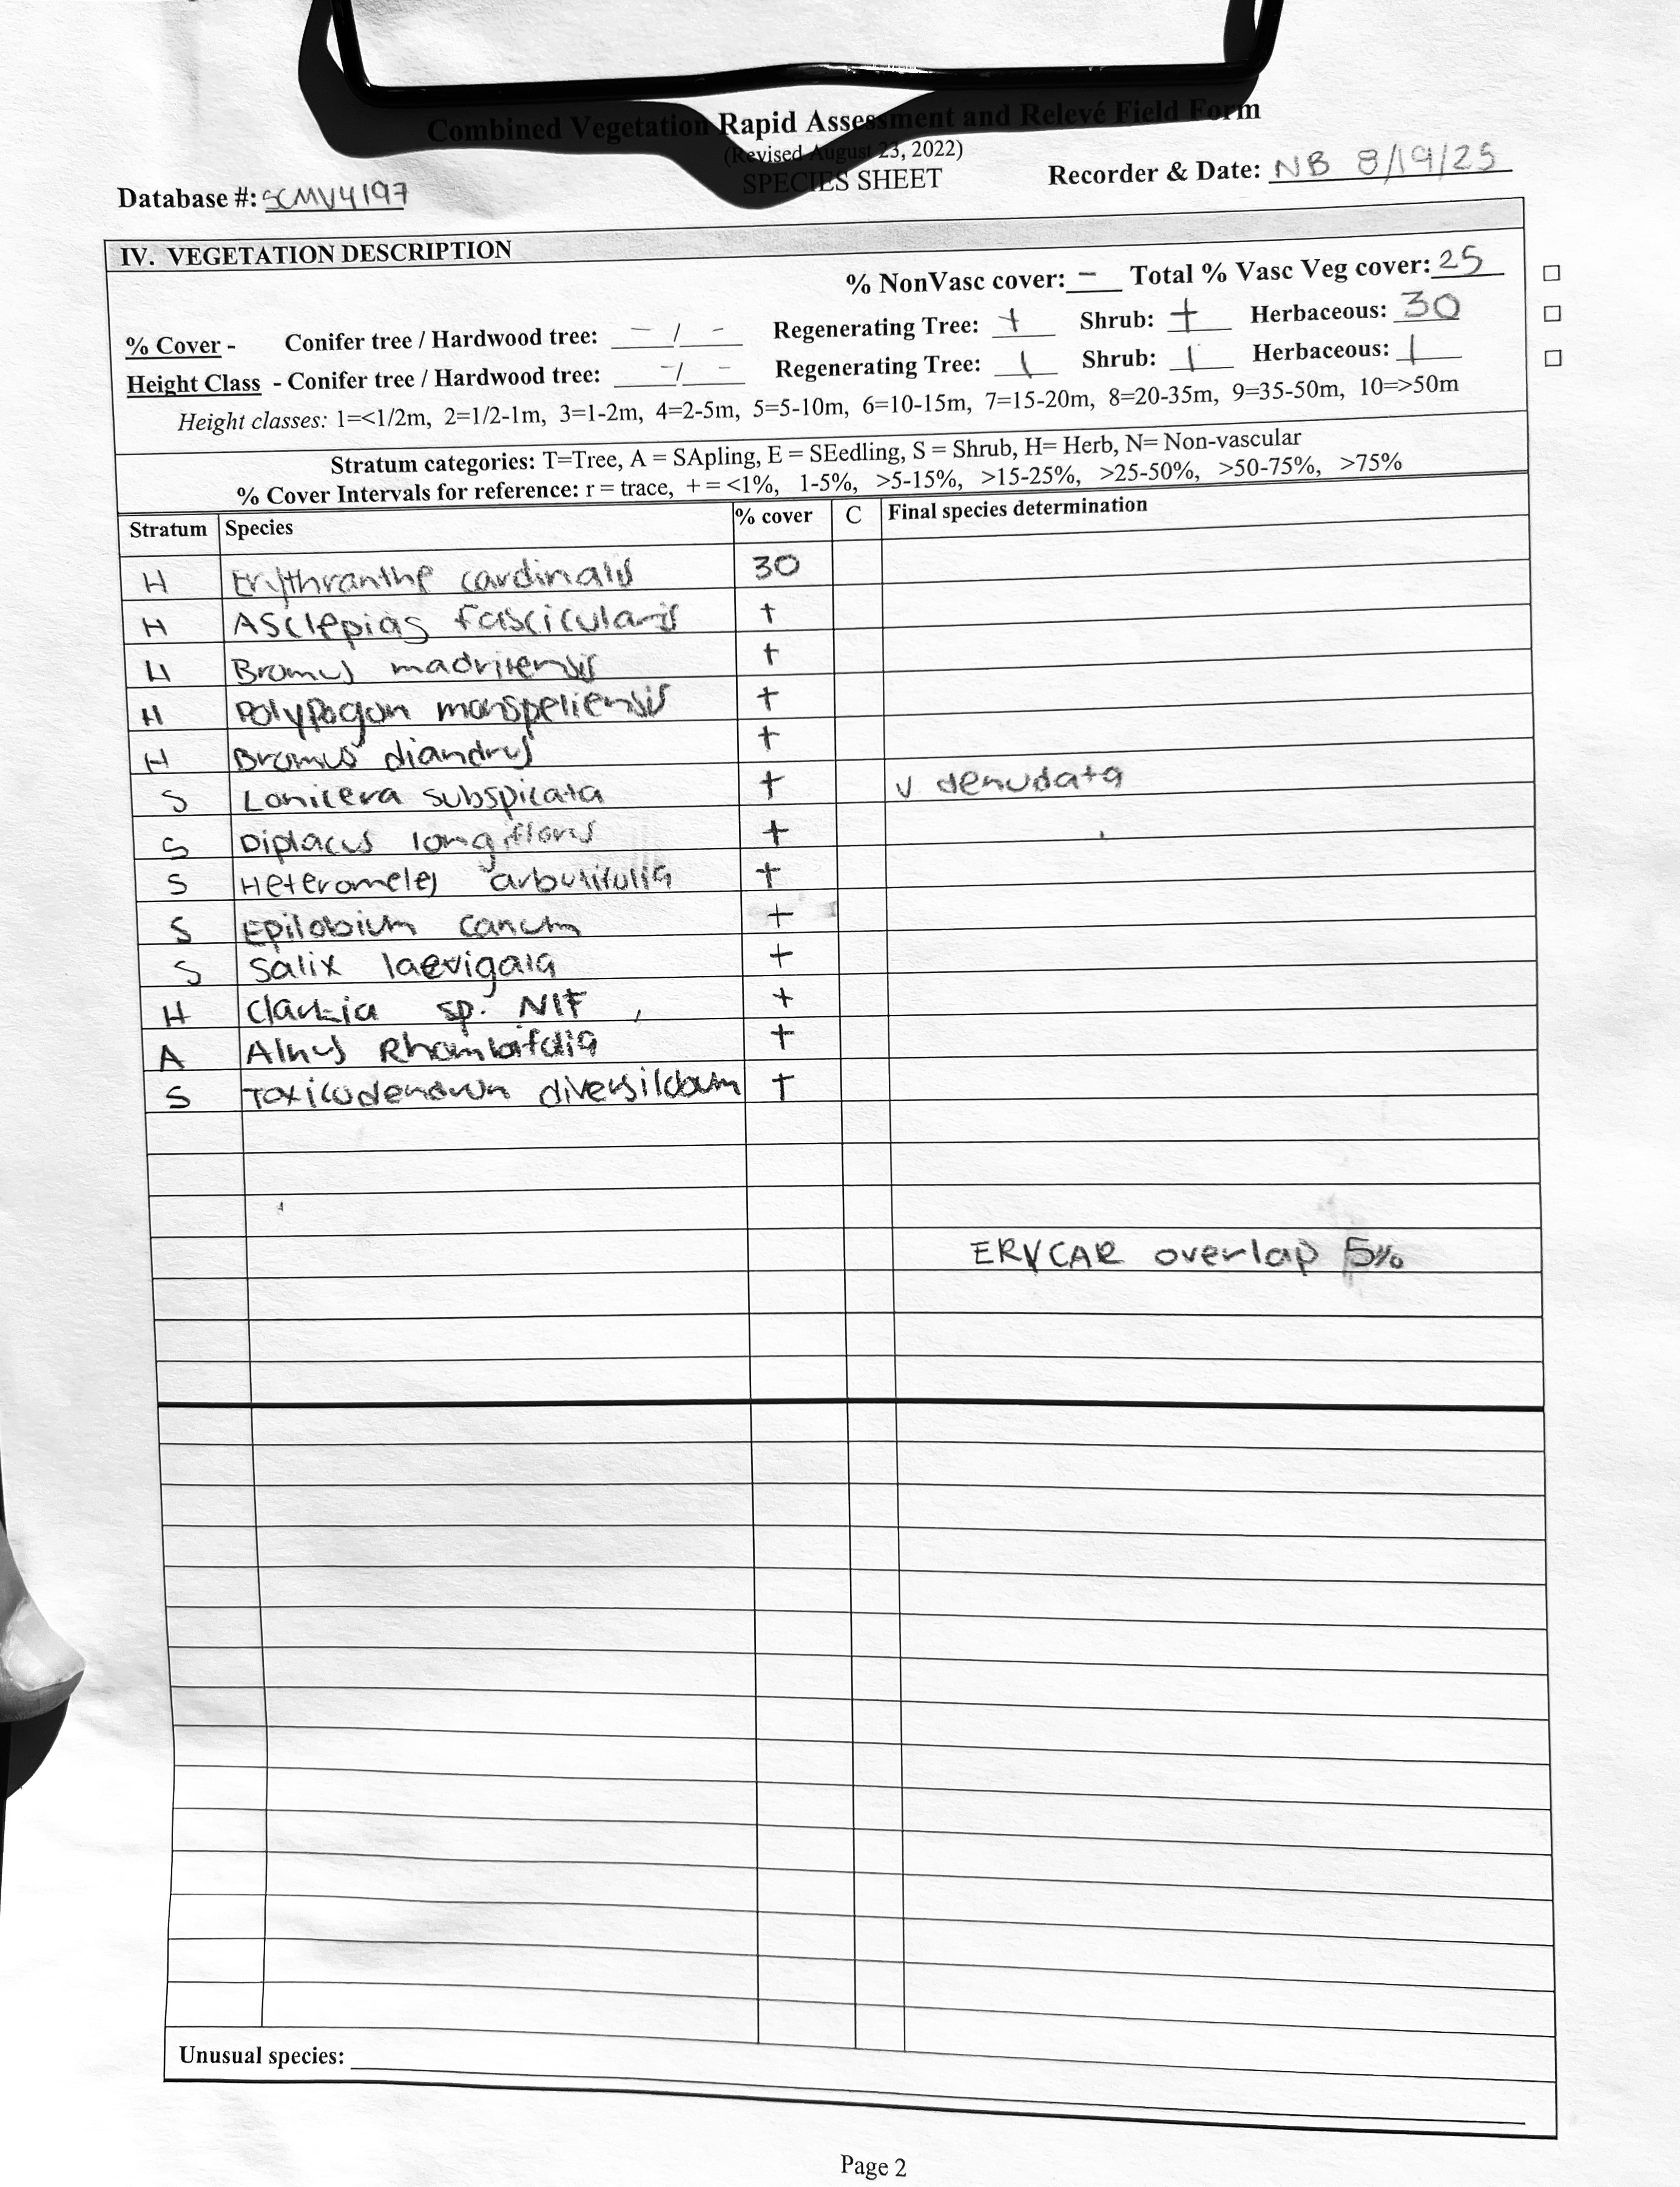 Combined Vegetation Rapid Assessment and Relevé Field Form
(Revised August 23, 2022)
SPECIES SHEET
Database #: SCMV4197
Recorder & Date: NB 8/19/25
IV. VEGETATION DESCRIPTION
% NonVasc cover: – Total % Vasc Veg cover: 25
% Cover - Conifer tree / Hardwood tree: – / – Regenerating Tree: + Shrub: + Herbaceous: 30
Height Class - Conifer tree / Hardwood tree: – / – Regenerating Tree: 1 Shrub: 1 Herbaceous: 1
Height classes: 1=<1/2m, 2=1/2-1m, 3=1-2m, 4=2-5m, 5=5-10m, 6=10-15m, 7=15-20m, 8=20-35m, 9=35-50m, 10=>50m
Stratum categories: T=Tree, A = SApling, E = SEedling, S = Shrub, H= Herb, N= Non-vascular
% Cover Intervals for reference: r = trace, + = <1%, 1-5%, >5-15%, >15-25%, >25-50%, >50-75%, >75%
Stratum Species % cover C Final species determination
H Erythranthe cardinalis 30
H Asclepias fascicularis +
H Bromus madritensis +
H Polypogon monspeliensis +
H Bromus diandrus +
S Lonicera subspicata + v denudata
S Diplacus longiflorus +
S Heteromeles arbutifolia +
S Epilobium canum +
S Salix laevigata +
H Clarkia sp. NIF +
A Alnus Rhombifolia +
S Toxicodendrum diversilobum +
ERYCAR overlap 5%
Unusual species:
Page 2